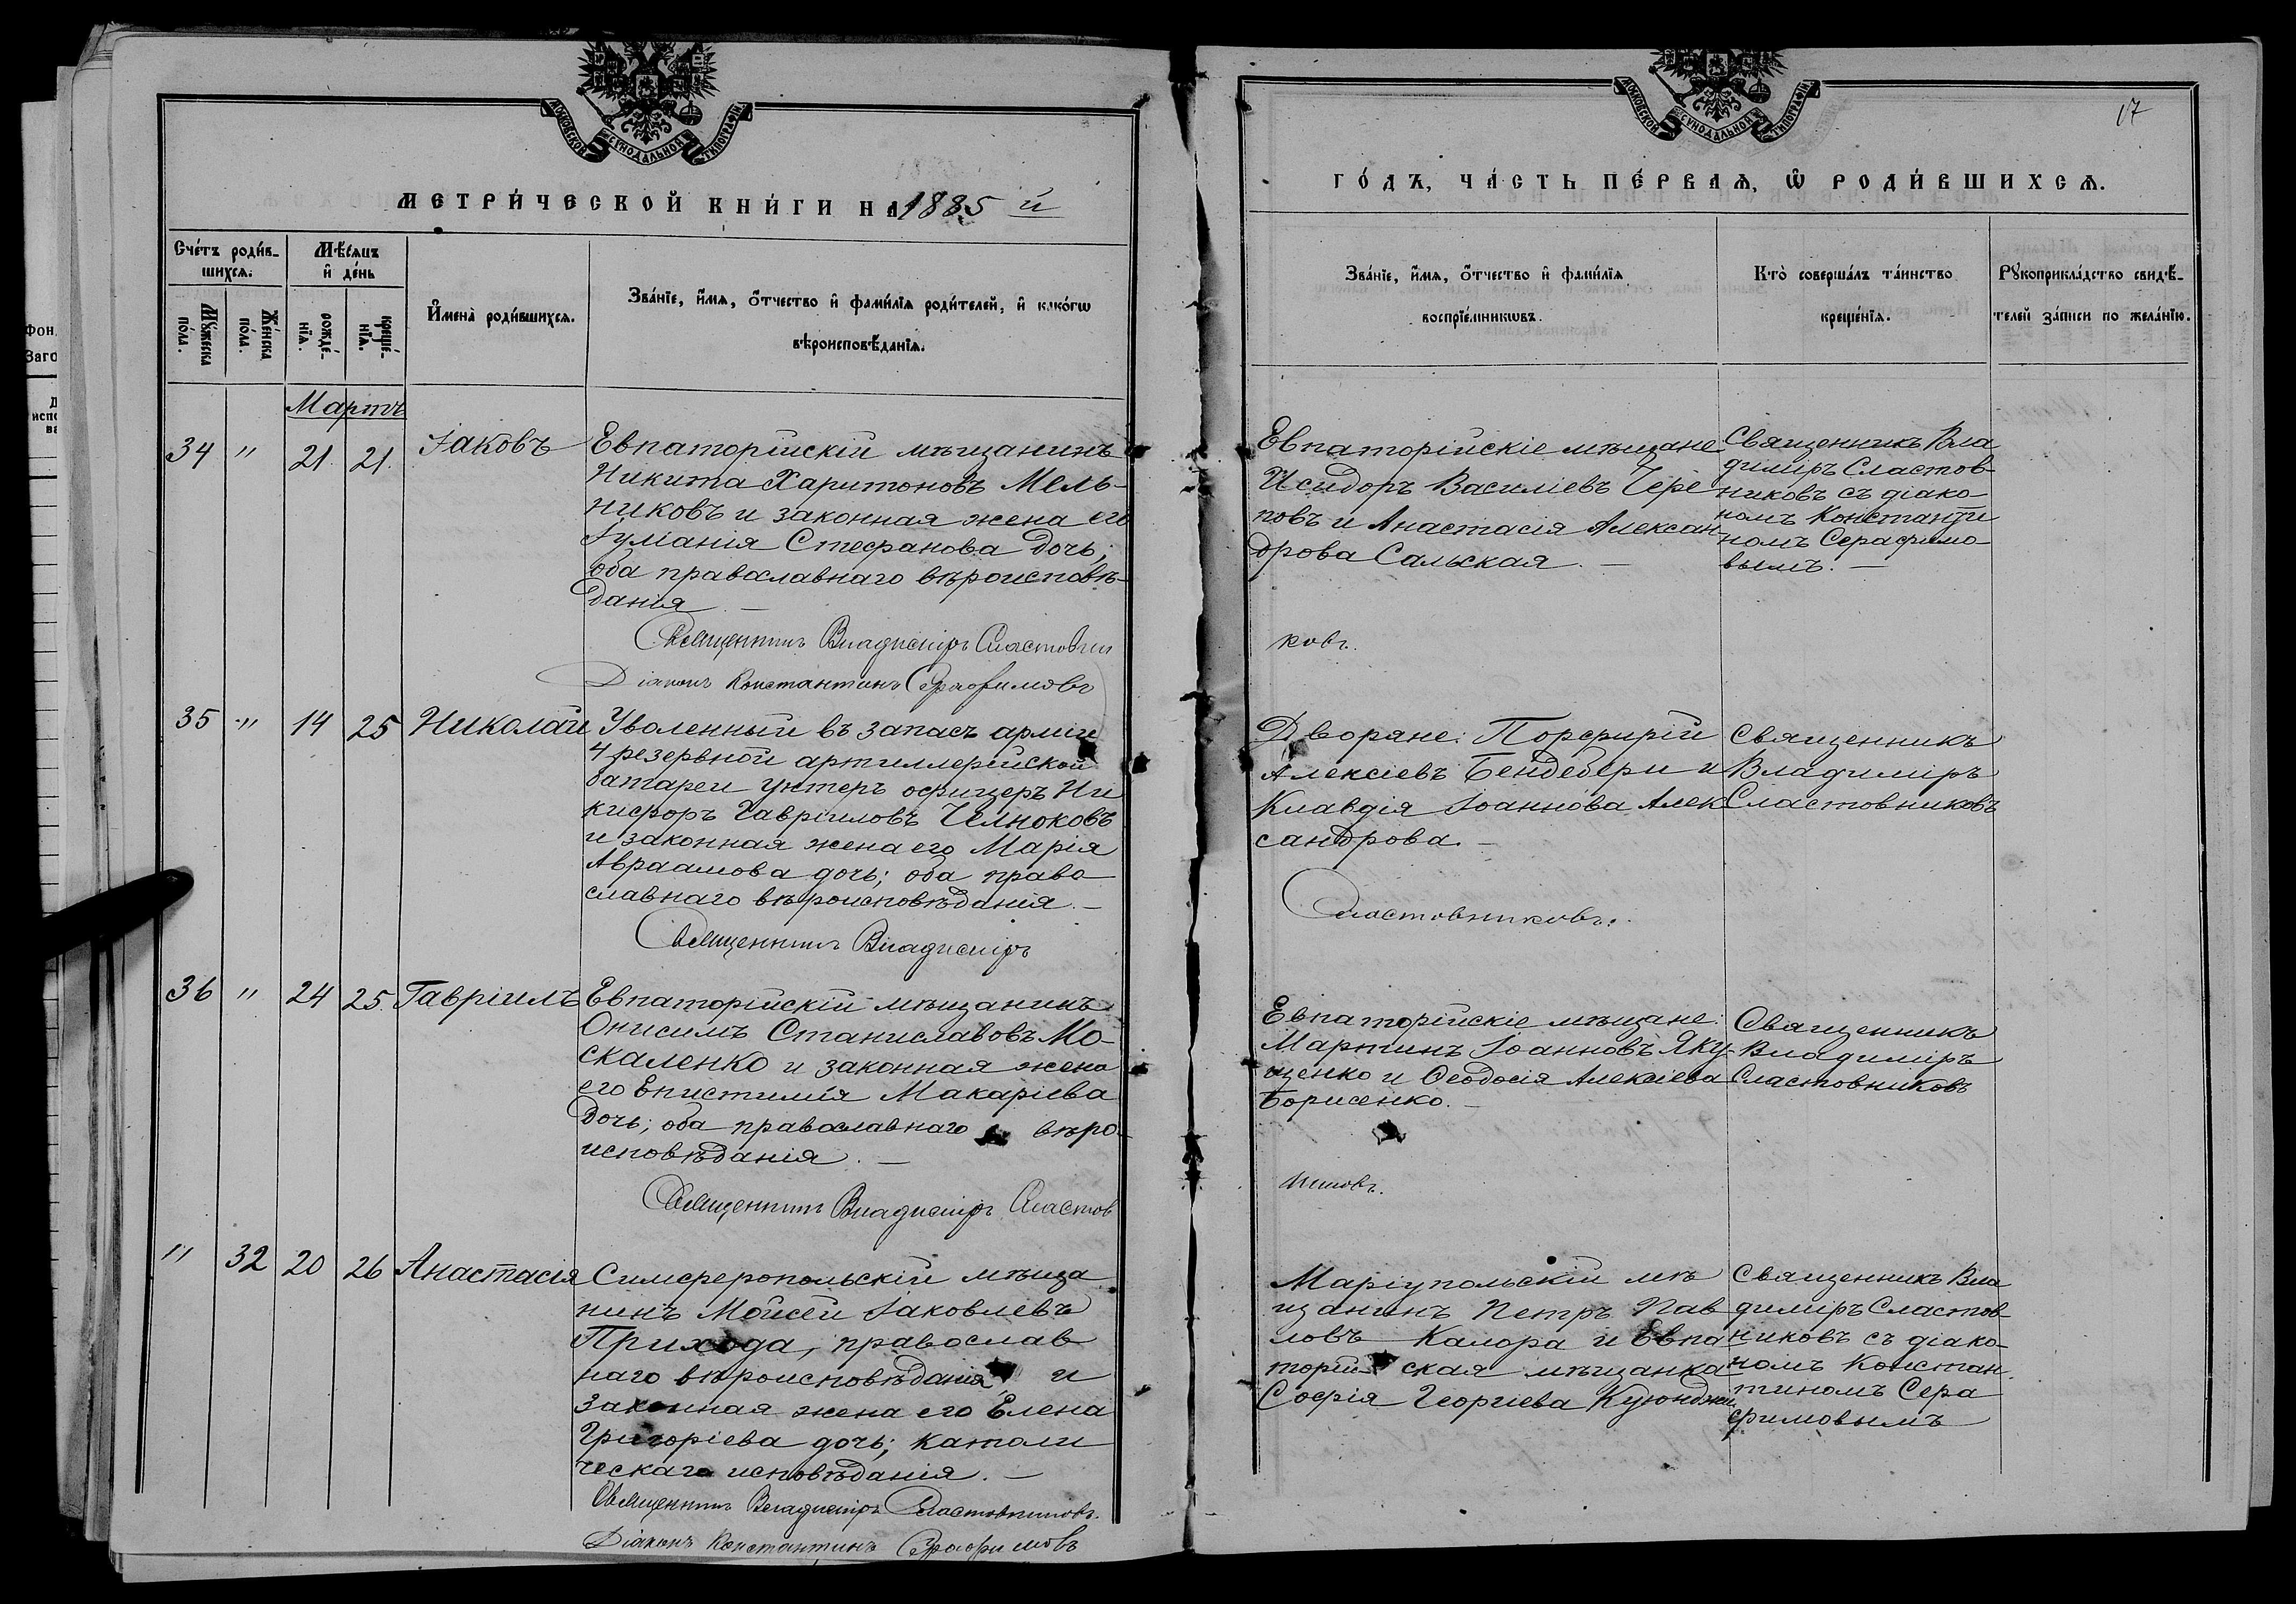 МОСКОВСКОЙ СѴНОДАЛЬНОЙ ТИПОГРАФІИ
МЕТРИ́ЧЕСКОЙ КНИ́ГИ НА 1885 й
Сче́тъ роди́в-
шихсѧ.
Мѣ́сѧцъ
и҆ де́нь
Мꙋ́жеска
по́ла.
Же́нска
по́ла.
рожде́-
нїѧ.
креще́-
нїѧ.
И҆мена̀ роди́вшихсѧ.
Зва́нїе, и҆́мѧ, ѻ҆́тчество и҆ фами́лїѧ роди́телей, и҆ како́гѡ
вѣроисповѣ́данїѧ.
Мартъ
34 " 21. 21. Іаковъ
Евпаторійскій мѣщанинъ
Никита Харитоновъ Мель-
никовъ и законная жена его
Іуліанія Стефанова дочь;
оба православнаго вѣроисповѣ-
данія. —
Священникъ Владиміръ Сластовни
Діаконъ Константинъ Серафимовъ
35 " 14 25 Николай
Уволенный въ запасъ арміи
4 резервной артиллерійской
батареи унтеръ офицеръ Ни
кифоръ Гавріиловъ Челноковъ
и законная жена его Марія
Авраамова дочь; оба право
славнаго вѣроисповѣданія. —
Священникъ Владиміръ
36 " 24 25. Гавріилъ
Евпаторійскій мѣщанинъ
Онисимъ Станиславовъ Мо-
скаленко и законная жена
его Епистимія Макаріева
дочь; оба православнаго вѣро-
исповѣданія. —
Священникъ Владиміръ Сластов
" 32 20 26 Анастасія
Симферопольскій мѣща
нинъ Моисей Іаковлевъ
Прихода, православ
наго вѣроисповѣданія, и
законная жена его Елена
Григоріева дочь; католи
ческаго исповѣданія. —
Священникъ Владиміръ Сластовниковъ.
Діаконъ Константинъ Серафимовъ
17
МОСКОВСКОЙ СѴНОДАЛЬНОЙ ТИПОГРАФІИ
ГО́ДЪ, ЧА́СТЬ ПЕ́РВАѦ, Ѡ҆ РОДИ́ВШИХСѦ.
Зва́нїе, и҆́мѧ, ѻ҆́тчество и҆ фами́лїѧ
воспрїе́мникѡвъ.
Кто̀ соверша́лъ та́инство
креще́нїѧ.
Рꙋкоприкла́дство свидѣ́-
телей за́писи по жела́нїю.
Евпаторійскіе мѣщане
Исидоръ Василіевъ Чере
повъ и Анастасія Алексан
дрова Сальская. —
Священникъ Вла
диміръ Сластов-
никовъ съ діако-
номъ Константи
номъ Серафимо-
вымъ. —
ковъ.
Дворяне: Порфирій
Алексіевъ Бендебери и
Клавдія Іоаннова Алек
сандрова. —
Священникъ
Владиміръ
Сластовниковъ
Сластовниковъ.
Евпаторійскіе мѣщане:
Мартинъ Іоанновъ Яку-
щенко и Ѳеодосія Алексіева
Борисенко. —
Священникъ
Владиміръ
Сластовниковъ
никовъ.
Маріупольскій мѣ
щанинъ Петръ Пав
ловъ Калора и Евпа
торій ская мѣщанка
Софія Георгіева Куюнджи
Священникъ Вла
диміръ Сластов-
никовъ съ діако-
номъ Констан-
тиномъ Сера
фимовымъ